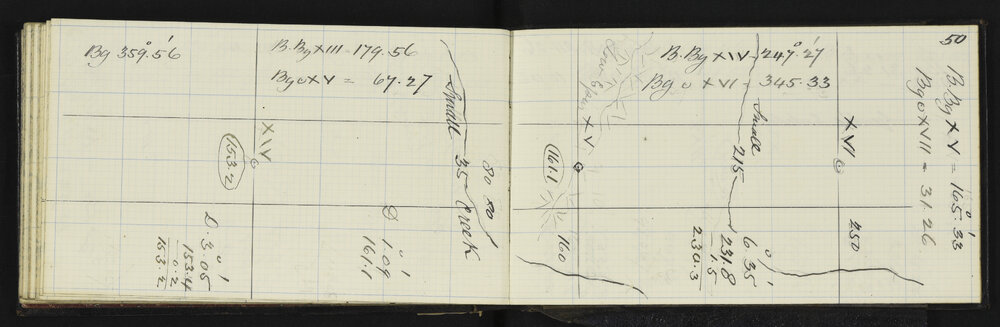 Bg 359°.56'
B.By XIII = 179.56
Bg ⊙ XV = 67.27
XIV
153.2
D. 3°.05'
153.4
0.2
153.2
D 1°.09'
161.1
Small 35 Creek
80
50
B.By XIV = 247°.27'
Bg ⊙ XVI = 345.33
Low Spur
XV
161.1
160
Small
215
6°35'
231.8
1.5
230.3
XVI
250
50
B.By XV = 165°.33'
Bg ⊙ XVII = 31.26